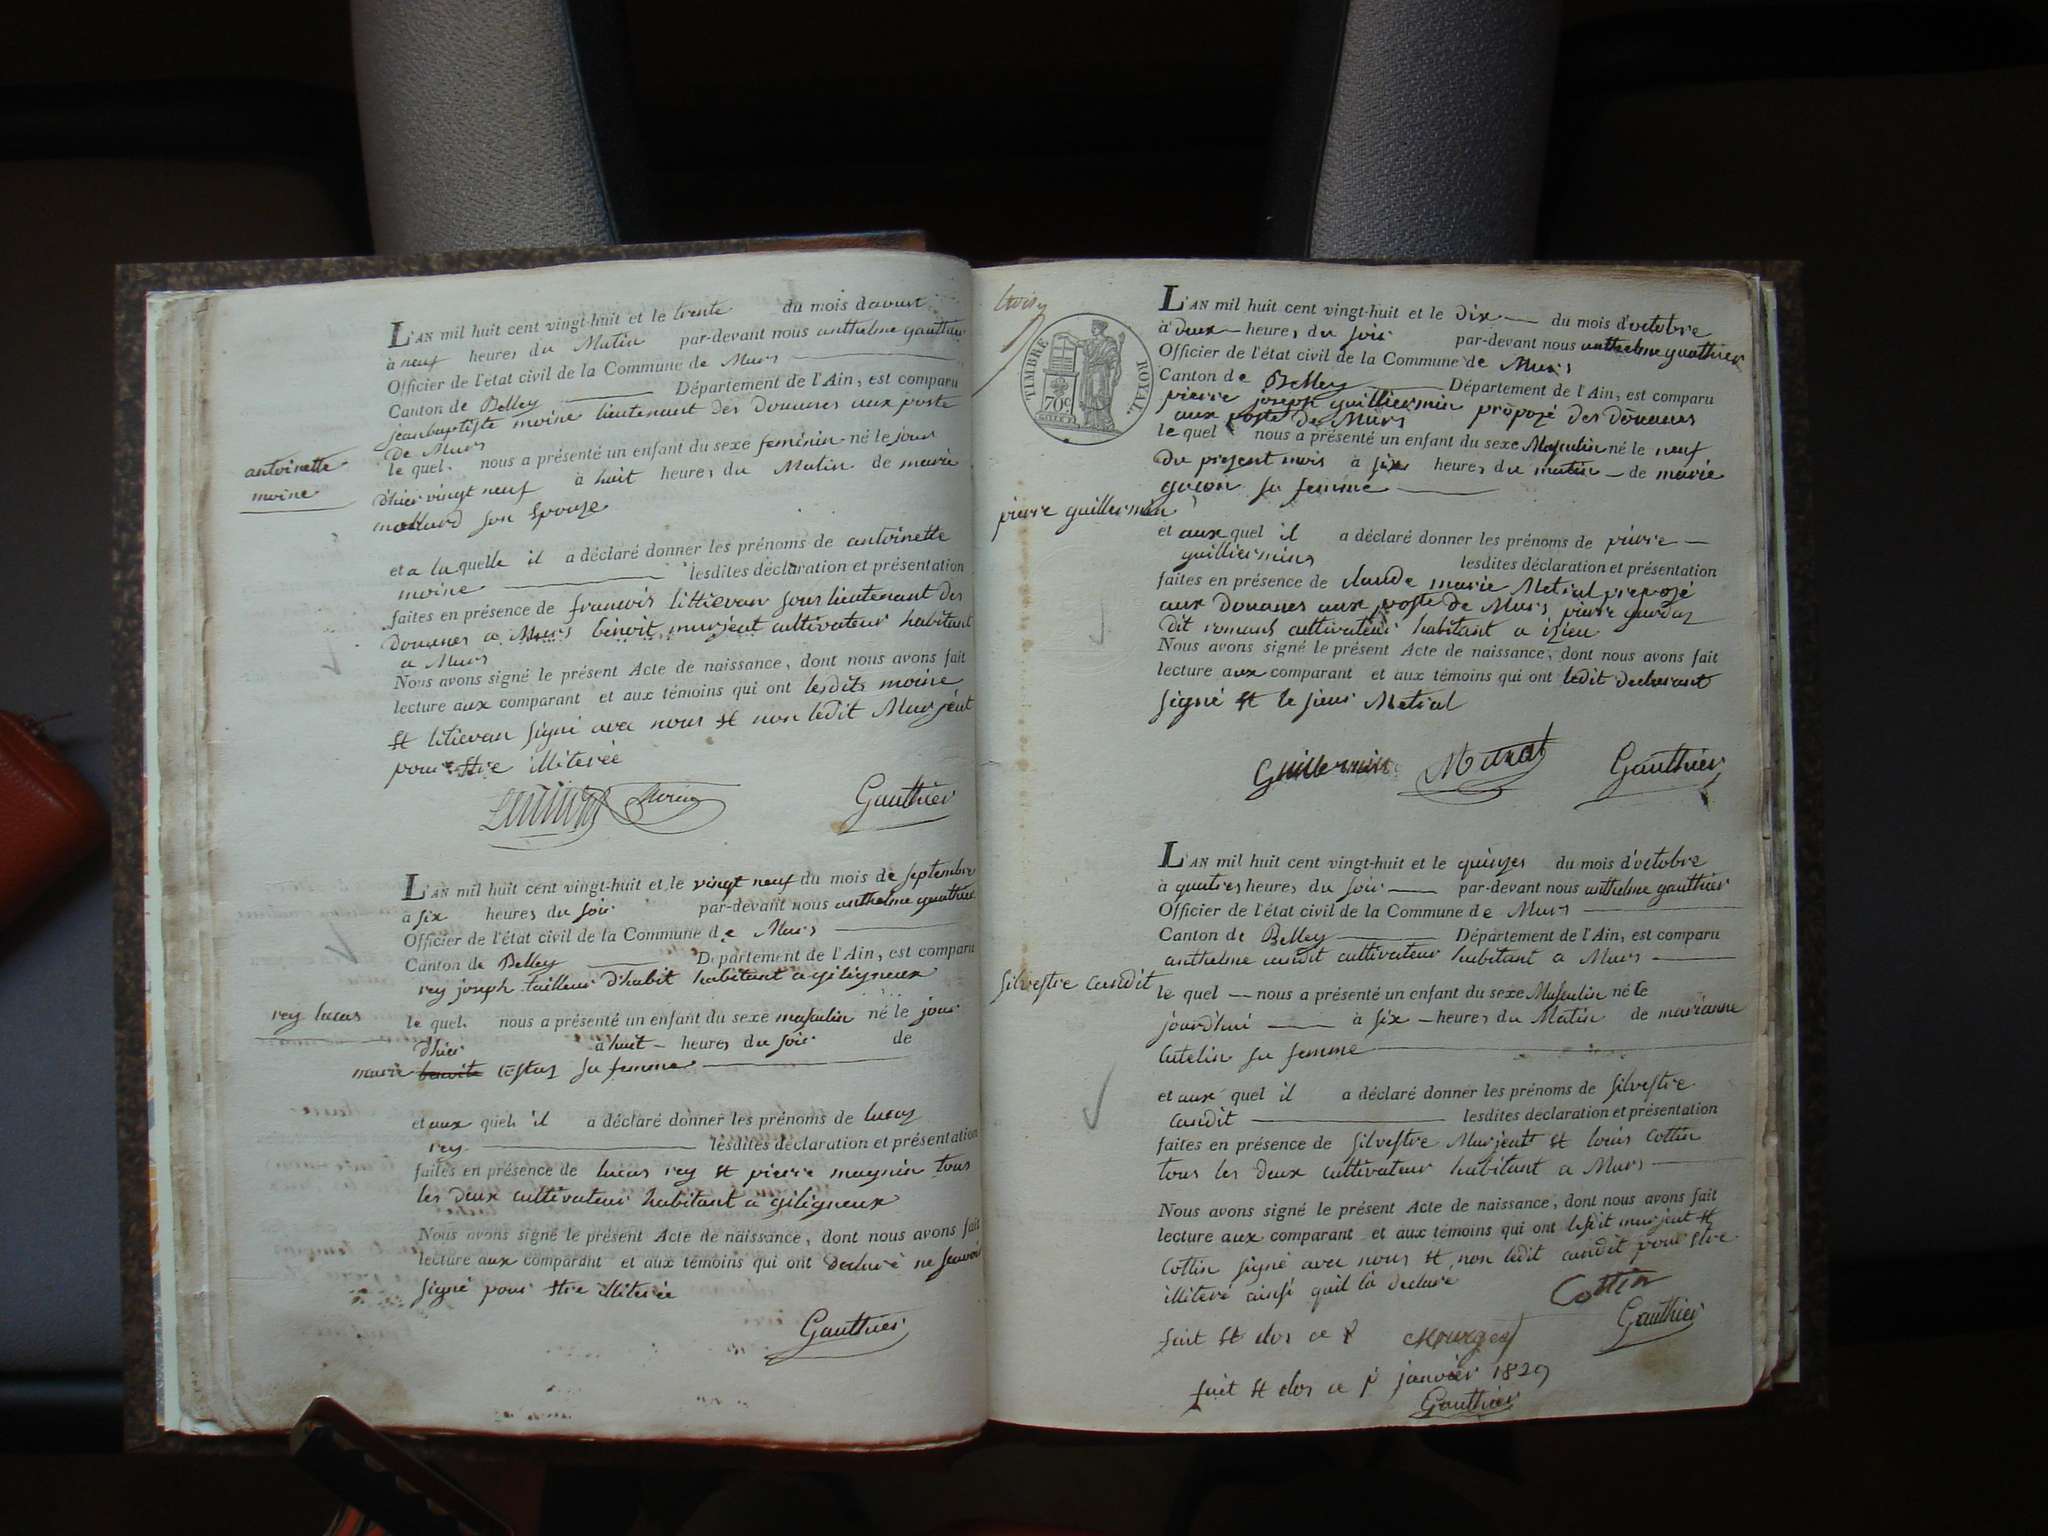 L'AN mil huit cent vingt-huit et le trente du mois d'avust
à neuf heures du Matin par-devant nous anthelme gauthier
Officier de l'état civil de la Commune de Murs
Canton de Belley Département de l'Ain, est comparu
jeanbaptiste moine lieutenant des douanes aux poste
de Murs
le quel. nous a présenté un enfant du sexe feminin né le jour
d'hier vingt neuf à huit heures du Matin de marie
mollard son Epouze
antoinette
moine
et a la quelle il a déclaré donner les prénoms de antoinette
moine lesdites déclaration et présentation
faites en présence de francois littievan sous lieutenant des
douanes a Murs benoit murjent cultivateur habitant
a Murs
Nous avons signé le présent Acte de naissance, dont nous avons fait
lecture aux comparant et aux témoins qui ont lesdits moine
et litievan signé avec nous et non ledit Murjent
pour Etre illiterée
Gauthier
L'AN mil huit cent vingt-huit et le vingt neuf du mois de septembre
à six heures du soir par-devant nous anthelme gauthier
Officier de l'état civil de la Commune de Murs
Canton de Belley Département de l'Ain, est comparu
rey joseph tailleur d'habit habitant a giligneux
rey lucas
le quel. nous a présenté un enfant du sexe masculin né le jour
d'hier à huit heures du soir de
marie benoite testas sa femme
et aux quel. il a déclaré donner les prénoms de lucas
rey lesdites déclaration et présentation
faites en présence de lucas rey et pierre magnin tous
les deux cultivateur habitant a giligneux
Nous avons signé le présent Acte de naissance, dont nous avons fait
lecture aux comparant et aux témoins qui ont declaré ne scavoir
signé pour Etre illiterée
Gauthier
TIMBRE ROYAL.
70c
L'AN mil huit cent vingt-huit et le dix du mois d'octobre
à deux heures du soir par-devant nous anthelme gauthier
Officier de l'état civil de la Commune de Murs
Canton de Belley Département de l'Ain, est comparu
pierre joseph guilliermin propozé des douanes
aux poste de Murs
le quel nous a présenté un enfant du sexe Masculin né le neuf
du present mois à six heures du matin de marie
gacon sa femme
pierre guillermin
et aux quel il a déclaré donner les prénoms de pierre
guilliermins lesdites déclaration et présentation
faites en présence de claude marie Metral prepozé
aux douanes aux poste de Murs pierre
dit romans cultivateur habitant a izieu
Nous avons signé le présent Acte de naissance, dont nous avons fait
lecture aux comparant et aux témoins qui ont ledit declarant
signé et le sieur Metral
Guillermin Metral Gauthier
L'AN mil huit cent vingt-huit et le quinzes du mois d'octobre
à quatres heures du soir par-devant nous anthelme gauthier
Officier de l'état civil de la Commune de Murs
Canton de Belley Département de l'Ain, est comparu
anthelme candit cultivateur habitant a Murs
silvestre candit
le quel nous a présenté un enfant du sexe Masculin né le
jourd'hui à six heures du Matin de marianne
cutelin sa femme
et aux quel il a déclaré donner les prénoms de silvestre
candit lesdites déclaration et présentation
faites en présence de silvestre Murjent et louis Cottin
tous les deux cultivateur habitant a Murs
Nous avons signé le présent Acte de naissance, dont nous avons fait
lecture aux comparant et aux témoins qui ont lesdit murjent et
Cottin signé avec nous et non ledit candit pour Etre
illiteré ainsi quil la declare
Cottin
fait et clos ce Gauthier
fait et clos ce 1r janvier 1829
Gauthier